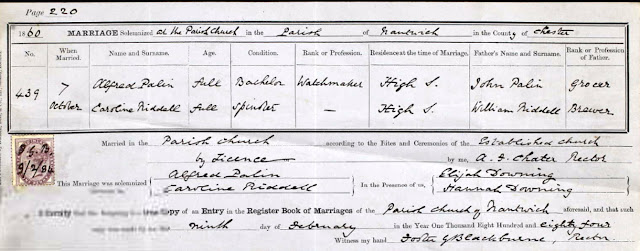 Page 220
1860 MARRIAGE Solemnized at the Parish church in the Parish of Nantwich in the County of Chester
No. When Married. Name and Surname. Age. Condition. Rank or Profession. Residence at the time of Marriage. Father's Name and Surname. Rank or Profession of Father.
439 7 October Alfred Palin full Bachelor Watchmaker High S. John Palin Grocer
Caroline Riddell full Spinster — High S. William Riddell Brewer
Married in the Parish church according to the Rites and Ceremonies of the Established church
by Licence by me, A. F. Chater Rector
This Marriage was solemnized Alfred Palin Caroline Riddell In the Presence of us, Elijah Downing Hannah Downing
Copy of an Entry in the Register Book of Marriages of the Parish church of Nantwich aforesaid, and that such
ninth day of February in the Year One Thousand Eight Hundred and eighty four
Witness my hand Foster G Blackburne, Rector.